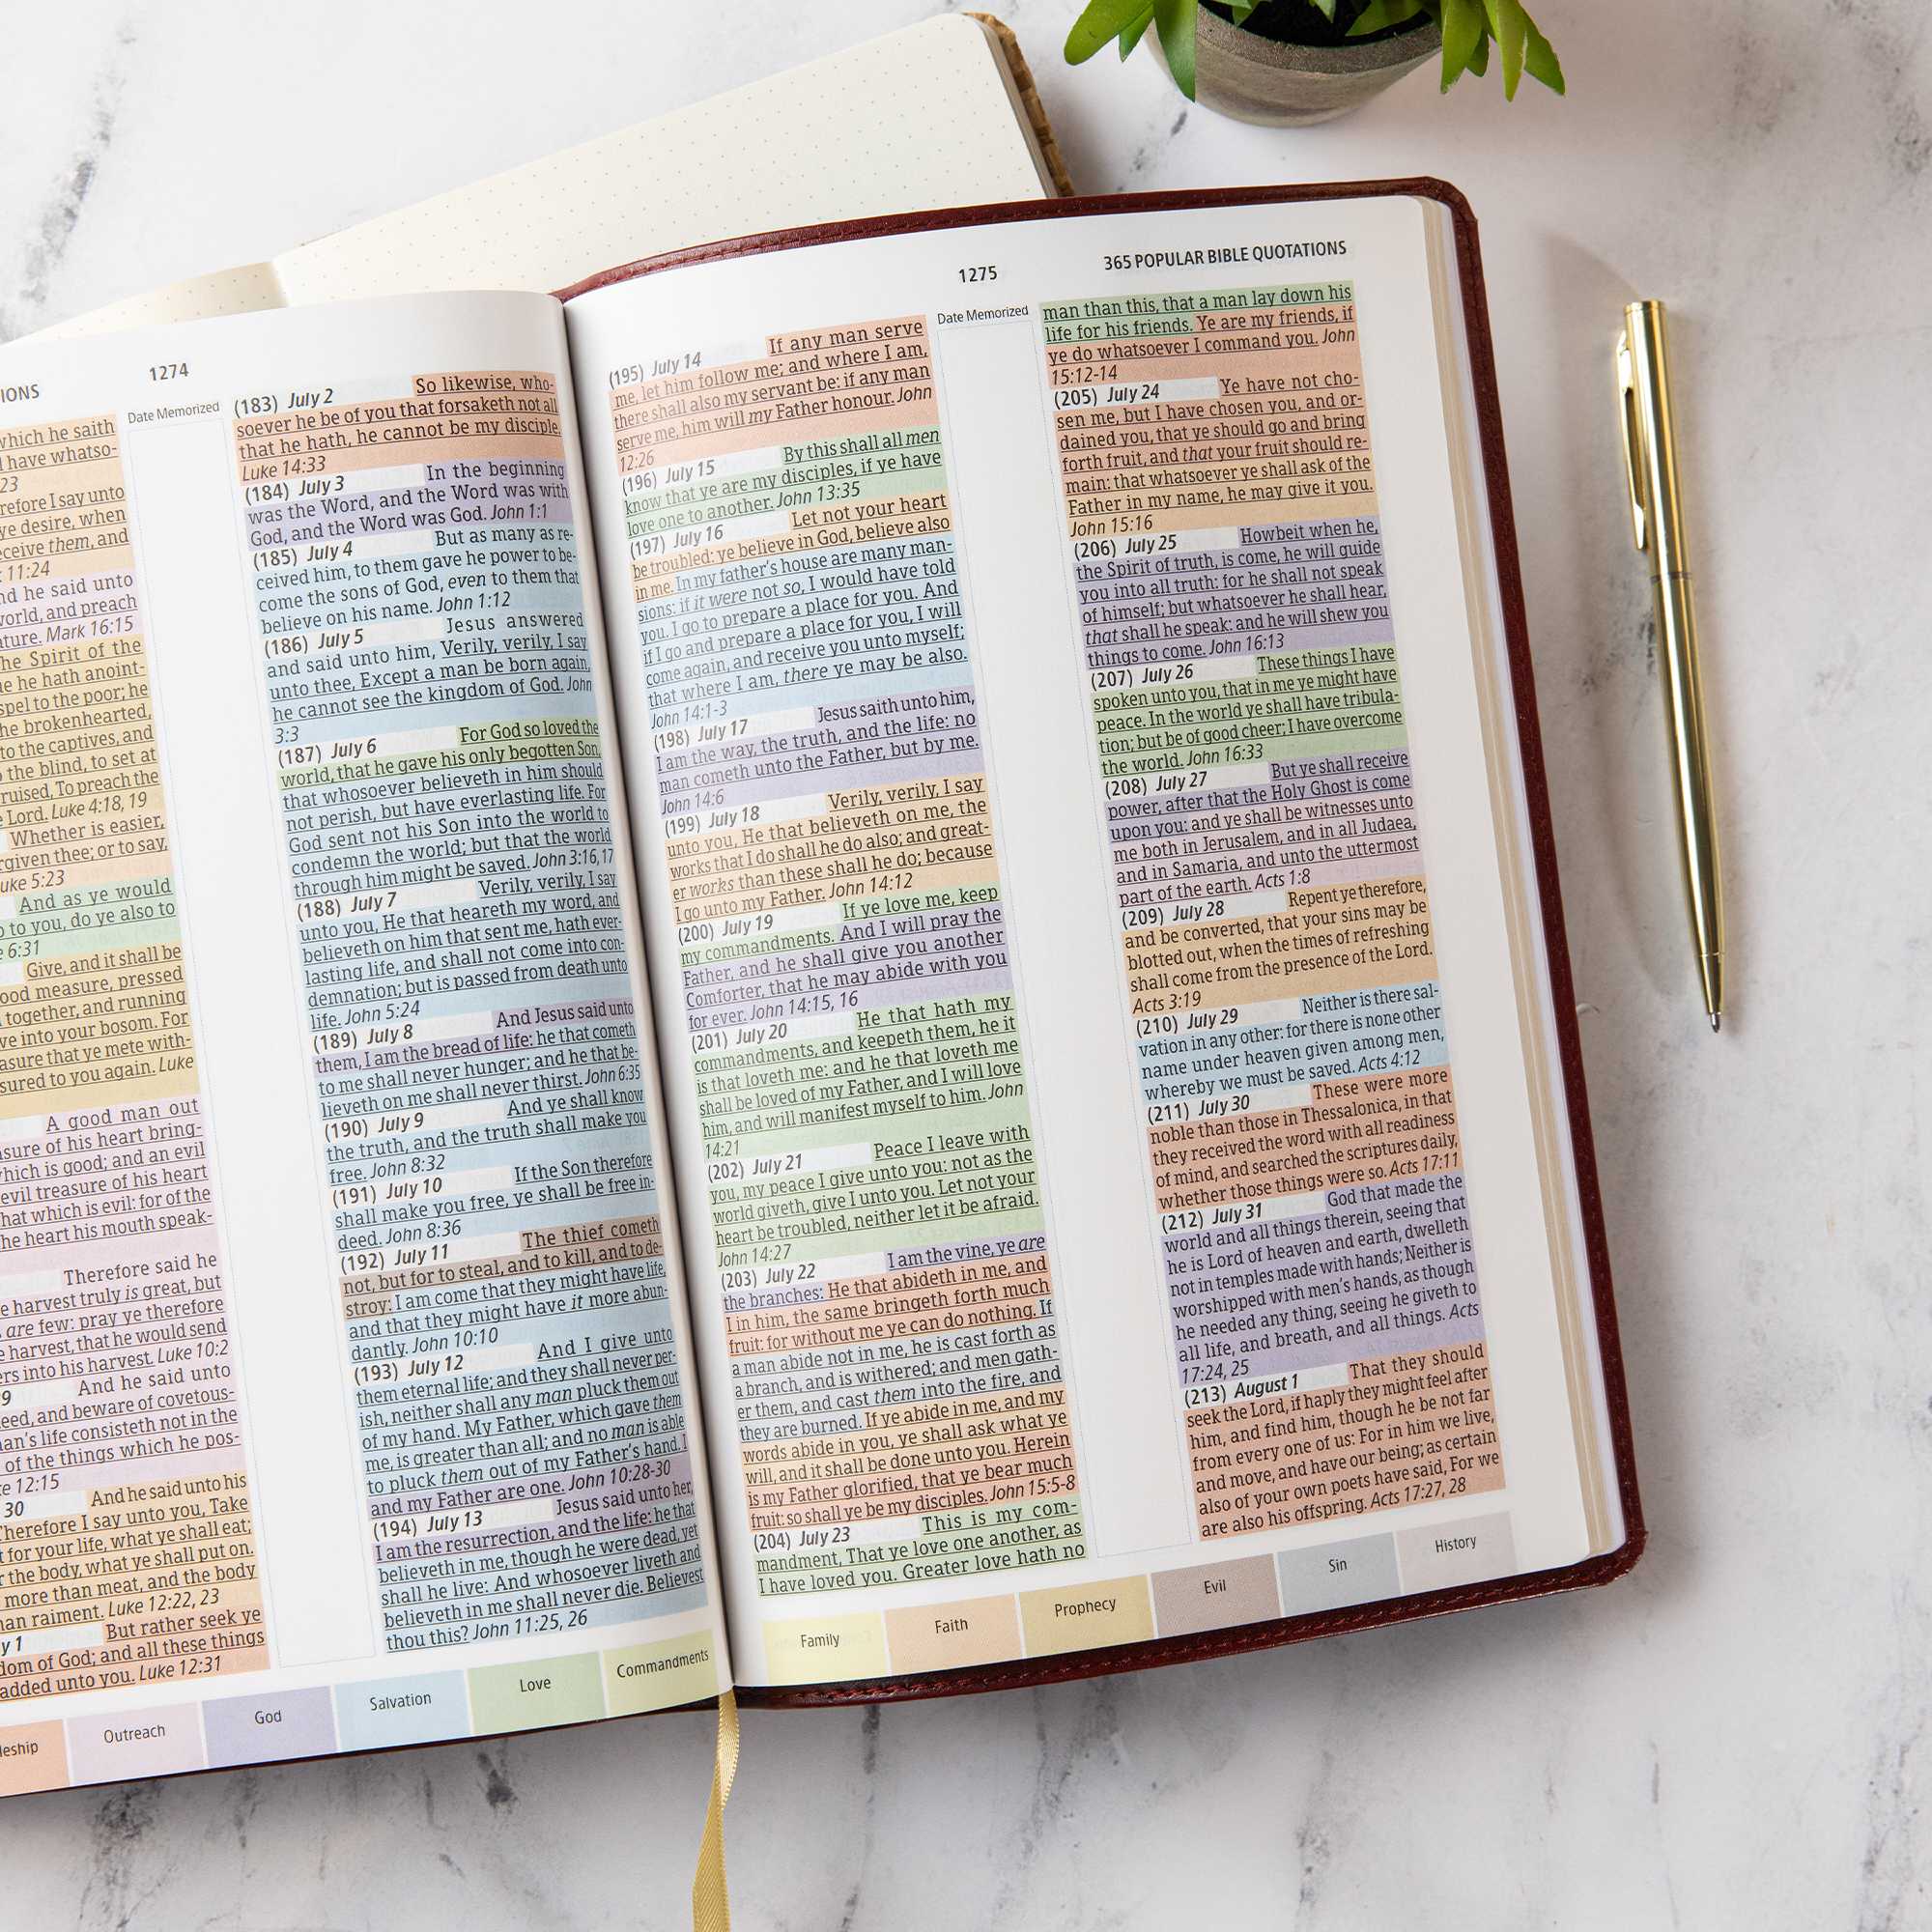 IONS
1274
Date Memorized
which he saith
have whatso-
23
refore I say unto
ye desire, when
eceive them, and
11:24
nd he said unto
world, and preach
ature. Mark 16:15
he Spirit of the
e he hath anoint-
spel to the poor; he
he brokenhearted,
to the captives, and
o the blind, to set at
ruised, To preach the
Lord. Luke 4:18, 19
Whether is easier,
rgiven thee; or to say,
uke 5:23
And as ye would
o to you, do ye also to
e 6:31
Give, and it shall be
ood measure, pressed
together, and running
ve into your bosom. For
asure that ye mete with-
sured to you again. Luke
A good man out
asure of his heart bring-
which is good; and an evil
evil treasure of his heart
hat which is evil: for of the
he heart his mouth speak-
Therefore said he
e harvest truly is great, but
are few: pray ye therefore
e harvest, that he would send
ers into his harvest. Luke 10:2
9 And he said unto
eed, and beware of covetous-
an's life consisteth not in the
of the things which he pos-
e 12:15
30 And he said unto his
Therefore I say unto you, Take
t for your life, what ye shall eat;
r the body, what ye shall put on.
more than meat, and the body
han raiment. Luke 12:22, 23
y 1 But rather seek ye
dom of God; and all these things
added unto you. Luke 12:31
(183) July 2 So likewise, who-
soever he be of you that forsaketh not all
that he hath, he cannot be my disciple.
Luke 14:33
(184) July 3 In the beginning
was the Word, and the Word was with
God, and the Word was God. John 1:1
(185) July 4 But as many as re-
ceived him, to them gave he power to be-
come the sons of God, even to them that
believe on his name. John 1:12
(186) July 5 Jesus answered
and said unto him, Verily, verily, I say
unto thee, Except a man be born again,
he cannot see the kingdom of God. John
3:3
(187) July 6 For God so loved the
world, that he gave his only begotten Son,
that whosoever believeth in him should
not perish, but have everlasting life. For
God sent not his Son into the world to
condemn the world; but that the world
through him might be saved. John 3:16,17
(188) July 7 Verily, verily, I say
unto you, He that heareth my word, and
believeth on him that sent me, hath ever-
lasting life, and shall not come into con-
demnation; but is passed from death unto
life. John 5:24
(189) July 8 And Jesus said unto
them, I am the bread of life: he that cometh
to me shall never hunger; and he that be-
lieveth on me shall never thirst. John 6:35
(190) July 9 And ye shall know
the truth, and the truth shall make you
free. John 8:32
(191) July 10 If the Son therefore
shall make you free, ye shall be free in-
deed. John 8:36
(192) July 11 The thief cometh
not, but for to steal, and to kill, and to de-
stroy: I am come that they might have life,
and that they might have it more abun-
dantly. John 10:10
(193) July 12 And I give unto
them eternal life; and they shall never per-
ish, neither shall any man pluck them out
of my hand. My Father, which gave them
me, is greater than all; and no man is able
to pluck them out of my Father's hand. I
and my Father are one. John 10:28-30
(194) July 13 Jesus said unto her,
I am the resurrection, and the life: he that
believeth in me, though he were dead, yet
shall he live: And whosoever liveth and
believeth in me shall never die. Believest
thou this? John 11:25, 26
leship Outreach God Salvation Love Commandments
1275
365 POPULAR BIBLE QUOTATIONS
Date Memorized
(195) July 14 If any man serve
me, let him follow me; and where I am,
there shall also my servant be: if any man
serve me, him will my Father honour. John
12:26
(196) July 15 By this shall all men
know that ye are my disciples, if ye have
love one to another. John 13:35
(197) July 16 Let not your heart
be troubled: ye believe in God, believe also
in me. In my father's house are many man-
sions: if it were not so, I would have told
you. I go to prepare a place for you. And
if I go and prepare a place for you, I will
come again, and receive you unto myself;
that where I am, there ye may be also.
John 14:1-3
(198) July 17 Jesus saith unto him,
I am the way, the truth, and the life: no
man cometh unto the Father, but by me.
John 14:6
(199) July 18 Verily, verily, I say
unto you, He that believeth on me, the
works that I do shall he do also; and great-
er works than these shall he do; because
I go unto my Father. John 14:12
(200) July 19 If ye love me, keep
my commandments. And I will pray the
Father, and he shall give you another
Comforter, that he may abide with you
for ever. John 14:15, 16
(201) July 20 He that hath my
commandments, and keepeth them, he it
is that loveth me: and he that loveth me
shall be loved of my Father, and I will love
him, and will manifest myself to him. John
14:21
(202) July 21 Peace I leave with
you, my peace I give unto you: not as the
world giveth, give I unto you. Let not your
heart be troubled, neither let it be afraid.
John 14:27
(203) July 22 I am the vine, ye are
the branches: He that abideth in me, and
I in him, the same bringeth forth much
fruit: for without me ye can do nothing. If
a man abide not in me, he is cast forth as
a branch, and is withered; and men gath-
er them, and cast them into the fire, and
they are burned. If ye abide in me, and my
words abide in you, ye shall ask what ye
will, and it shall be done unto you. Herein
is my Father glorified, that ye bear much
fruit: so shall ye be my disciples. John 15:5-8
(204) July 23 This is my com-
mandment, That ye love one another, as
I have loved you. Greater love hath no
man than this, that a man lay down his
life for his friends. Ye are my friends, if
ye do whatsoever I command you. John
15:12-14
(205) July 24 Ye have not cho-
sen me, but I have chosen you, and or-
dained you, that ye should go and bring
forth fruit, and that your fruit should re-
main: that whatsoever ye shall ask of the
Father in my name, he may give it you.
John 15:16
(206) July 25 Howbeit when he,
the Spirit of truth, is come, he will guide
you into all truth: for he shall not speak
of himself; but whatsoever he shall hear,
that shall he speak: and he will shew you
things to come. John 16:13
(207) July 26 These things I have
spoken unto you, that in me ye might have
peace. In the world ye shall have tribula-
tion; but be of good cheer; I have overcome
the world. John 16:33
(208) July 27 But ye shall receive
power, after that the Holy Ghost is come
upon you: and ye shall be witnesses unto
me both in Jerusalem, and in all Judaea,
and in Samaria, and unto the uttermost
part of the earth. Acts 1:8
(209) July 28 Repent ye therefore,
and be converted, that your sins may be
blotted out, when the times of refreshing
shall come from the presence of the Lord.
Acts 3:19
(210) July 29 Neither is there sal-
vation in any other: for there is none other
name under heaven given among men,
whereby we must be saved. Acts 4:12
(211) July 30 These were more
noble than those in Thessalonica, in that
they received the word with all readiness
of mind, and searched the scriptures daily,
whether those things were so. Acts 17:11
(212) July 31 God that made the
world and all things therein, seeing that
he is Lord of heaven and earth, dwelleth
not in temples made with hands; Neither is
worshipped with men's hands, as though
he needed any thing, seeing he giveth to
all life, and breath, and all things. Acts
17:24, 25
(213) August 1 That they should
seek the Lord, if haply they might feel after
him, and find him, though he be not far
from every one of us: For in him we live,
and move, and have our being; as certain
also of your own poets have said, For we
are also his offspring. Acts 17:27, 28
Family Faith Prophecy Evil Sin History